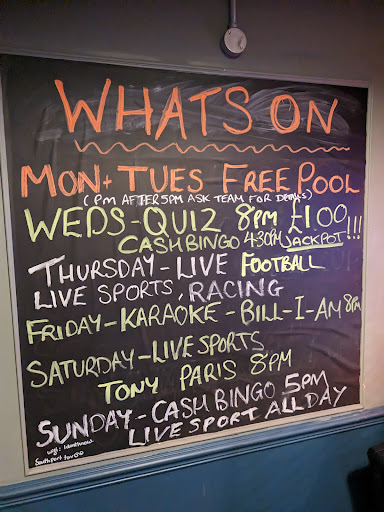 WHATS ON
MON+ TUES FREE POOL
(PM AFTER 5PM ASK TEAM FOR DETAILS)
WEDS-QUIZ 8PM £100
CASH BINGO 4:30PM JACKPOT!!!
THURSDAY-LIVE FOOTBALL
LIVE SPORTS, RACING
FRIDAY-KARAOKE-BILL-I-AM 8PM
SATURDAY-LIVE SPORTS
TONY PARIS 8PM
SUNDAY-CASH BINGO 5PM
LIVE SPORT ALL DAY
Southport